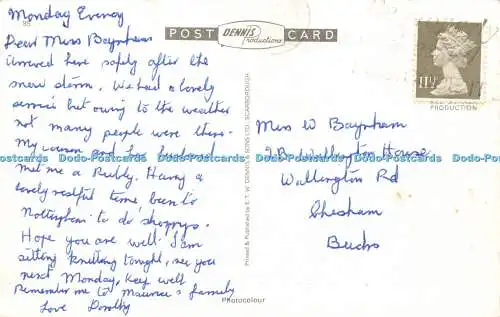 Monday Eveng
85
POST CARD
DENNIS
Productions
Dear Miss Baynham
Arrived here safely after the
snow storm. We had a lovely
service but owing to the weather
not many people were there.
My cousin and her husband
met me a Rugby. Having a
lovely restful time been to
Nottingham to do shoppng.
Hope you are well I am
sitting knitting tonight, see you
next Monday, Keep well
Remember me to Maurice & family
Love Dorothy
Printed & Published by E. T. W. DENNIS & SONS LTD., SCARBOROUGH
Photocolour
11½
PRODUCTION
Miss W Baynham
Wallington House
Wallington Rd
Chesham
Bucks
Dodo-Postcards Dodo-Postcards Dodo-Postcards Dodo-Postcards